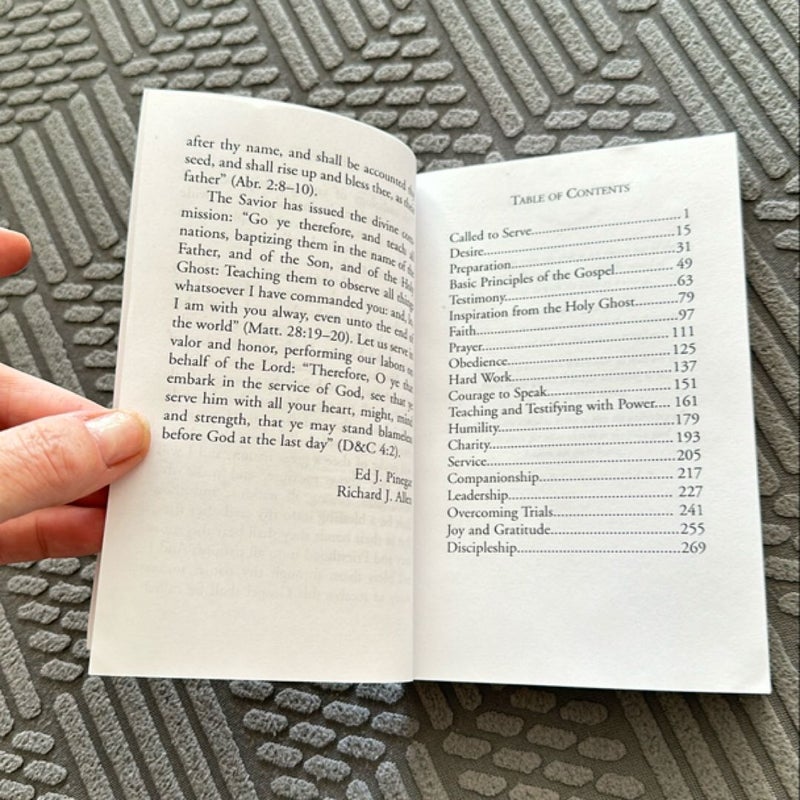 after thy name, and shall be accounted
seed, and shall rise up and bless thee, as
father” (Abr. 2:8–10).
The Savior has issued the divine
mission: “Go ye therefore, and teach
nations, baptizing them in the name of
Father, and of the Son, and of the Holy
Ghost: Teaching them to observe all things
whatsoever I have commanded you: and,
I am with you alway, even unto the end of
the world” (Matt. 28:19–20). Let us serve
valor and honor, performing our labors
behalf of the Lord: “Therefore, O ye that
embark in the service of God, see that ye
serve him with all your heart, might, mind
and strength, that ye may stand blameless
before God at the last day” (D&C 4:2).
Ed J. Pinegar
Richard J. Allen
TABLE OF CONTENTS
Called to Serve 1
Desire 15
Preparation 31
Basic Principles of the Gospel 49
Testimony 63
Inspiration from the Holy Ghost 79
Faith 97
Prayer 111
Obedience 125
Hard Work 137
Courage to Speak 151
Teaching and Testifying with Power.... 161
Humility 179
Charity 193
Service 205
Companionship 217
Leadership 227
Overcoming Trials 241
Joy and Gratitude 255
Discipleship 269